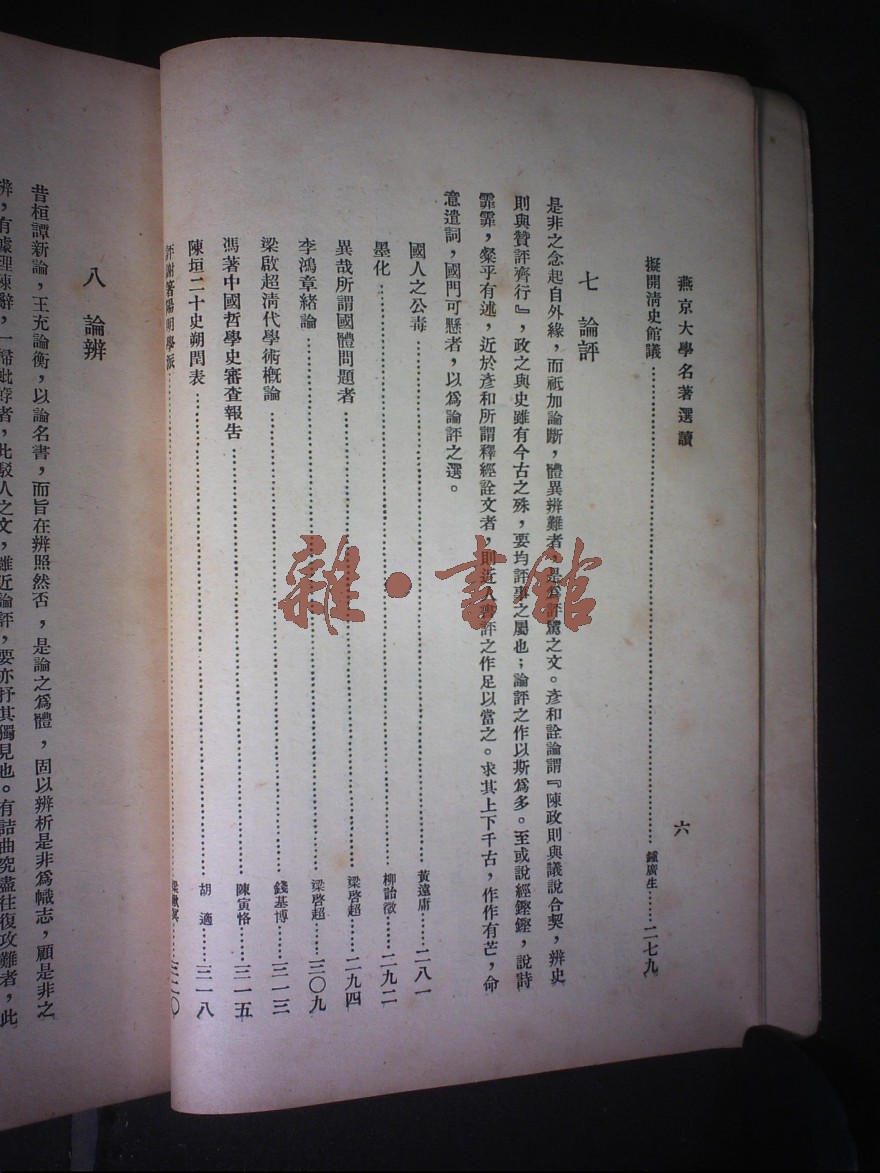 燕京大學名著選讀
六
擬開淸史館議……鍾廣生……二七九
七　論評
是非之念起自外緣，而祗加論斷，體異辨難者，是爲評騭之文。彥和詮論謂『陳政則與議說合契，辨史
則與贊評齊行』，政之與史雖有今古之殊，要均評事之屬也；論評之作以斯爲多。至或說經鏗鏗，說詩
霏霏，粲乎有述，近於彥和所謂釋經詮文者，則近人書評之作足以當之。求其上下千古，作作有芒，命
意遣詞，國門可懸者，以爲論評之選。
國人之公毒……黃遠庸……二八一
墨化……柳詒徵……二九二
異哉所謂國體問題者……梁啓超……二九四
李鴻章緒論……梁啓超……三〇九
梁啟超淸代學術槪論……錢基博……三一三
馮著中國哲學史審查報告……陳寅恪……三一五
陳垣二十史朔閏表……胡　適……三一八
評謝著陽明學派……梁漱溟……三二〇
八　論辨
昔桓譚新論，王充論衡，以論名書，而旨在辨照然否，是論之爲體，固以辨析是非爲幟志，顧是非之
辨，有據理陳辭，一帑紕繆者，此駁人之文，雖近論評，要亦抒其獨見也。有詰曲究盡往復攻難者，此
雜·書館